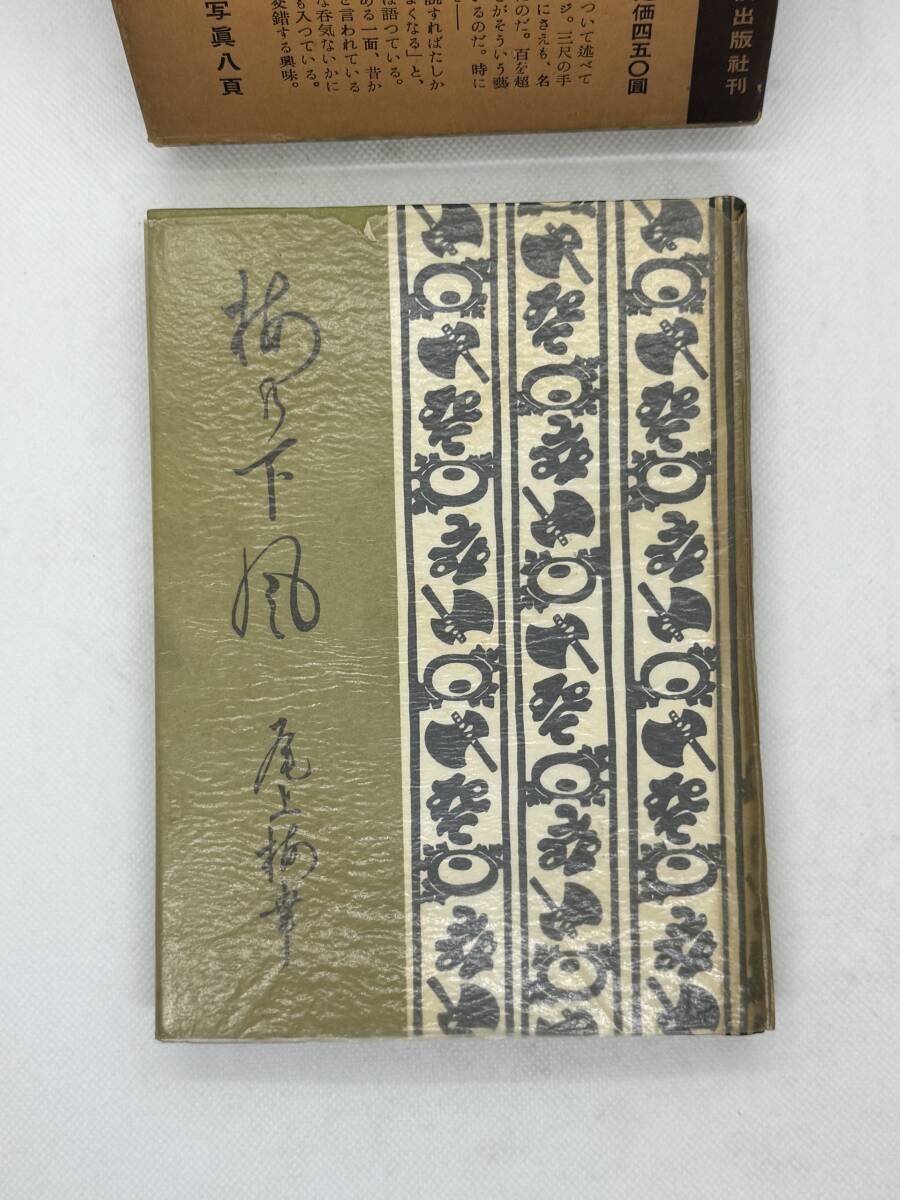 出版社刊
価四五〇圓
ついて述べて
ジ。三尺の手
にさえも、名
のだ。百を超
とがそういう藝
るのだ。時に
説すればたしか
よくなる」と、
は語つている。
ある一面、昔か
と言われている
な呑気ないかに
も入つている。
交錯する興味。
写眞八頁
梅乃下風
尾上梅幸